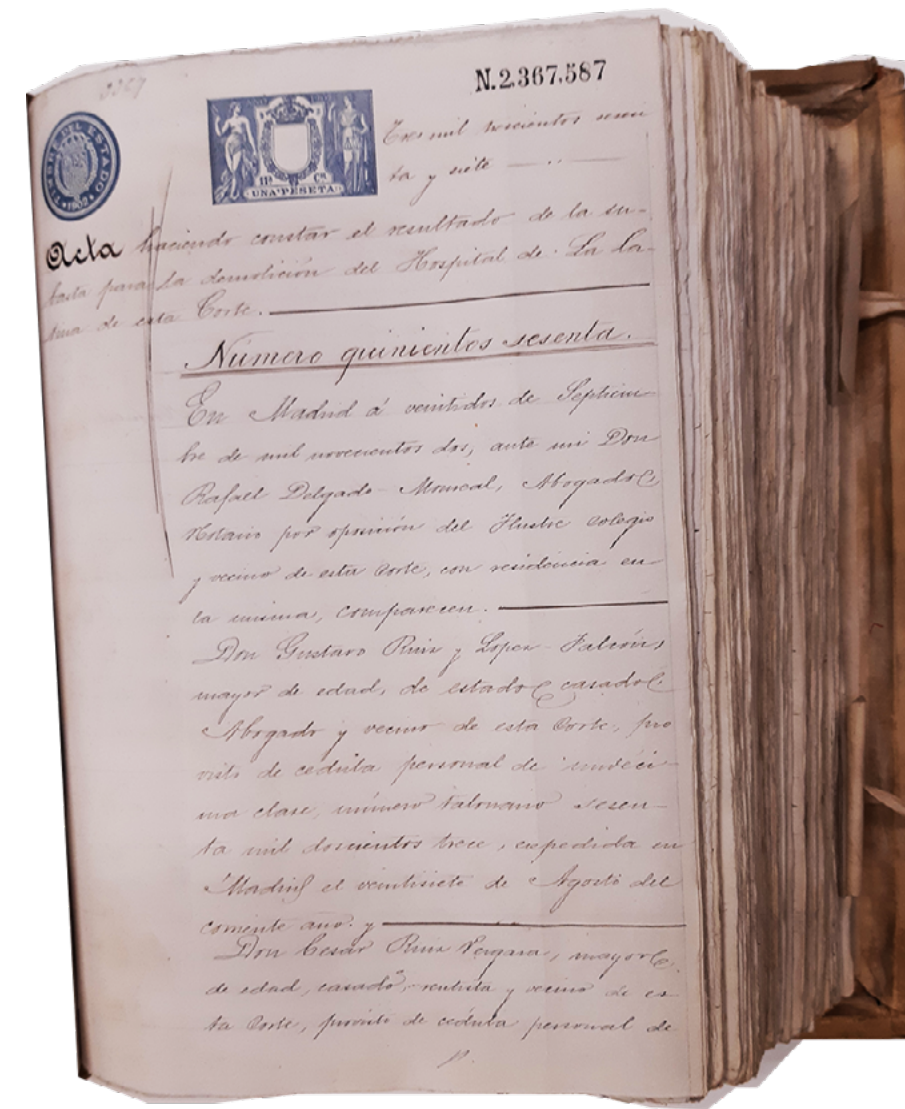 3367
N.2.367.587
TIMBRE DEL ESTADO
*1902*
11ª Cª
UNA PESETA
Tres mil trescientos sesen
ta y siete
Acta haciendo constar el resultado de la su-
basta para la demolición del Hospital de La La-
tina de esta Corte.
Número quinientos sesenta.
En Madrid á veintidos de Septiem-
bre de mil novecientos dos, ante mi Don
Rafael Delgado-Monreal, Abogado
Notario por oposición del Ilustre Colegio
y vecino de esta Corte, con residencia en
la misma, comparecen.
Don Gustavo Ruiz y Lopez-Falcón,
mayor de edad, de estado casado
Abogado y vecino de esta Corte, pro
visto de cedula personal de undéci-
ma clase, número talonario sesen-
ta mil doscientos trece, expedida en
Madrid el veintisiete de Agosto del
corriente año. y
Don Cesar Ruiz Vergara, mayor
de edad, casado, rentista y vecino de es-
ta Corte, provisto de cedula personal de